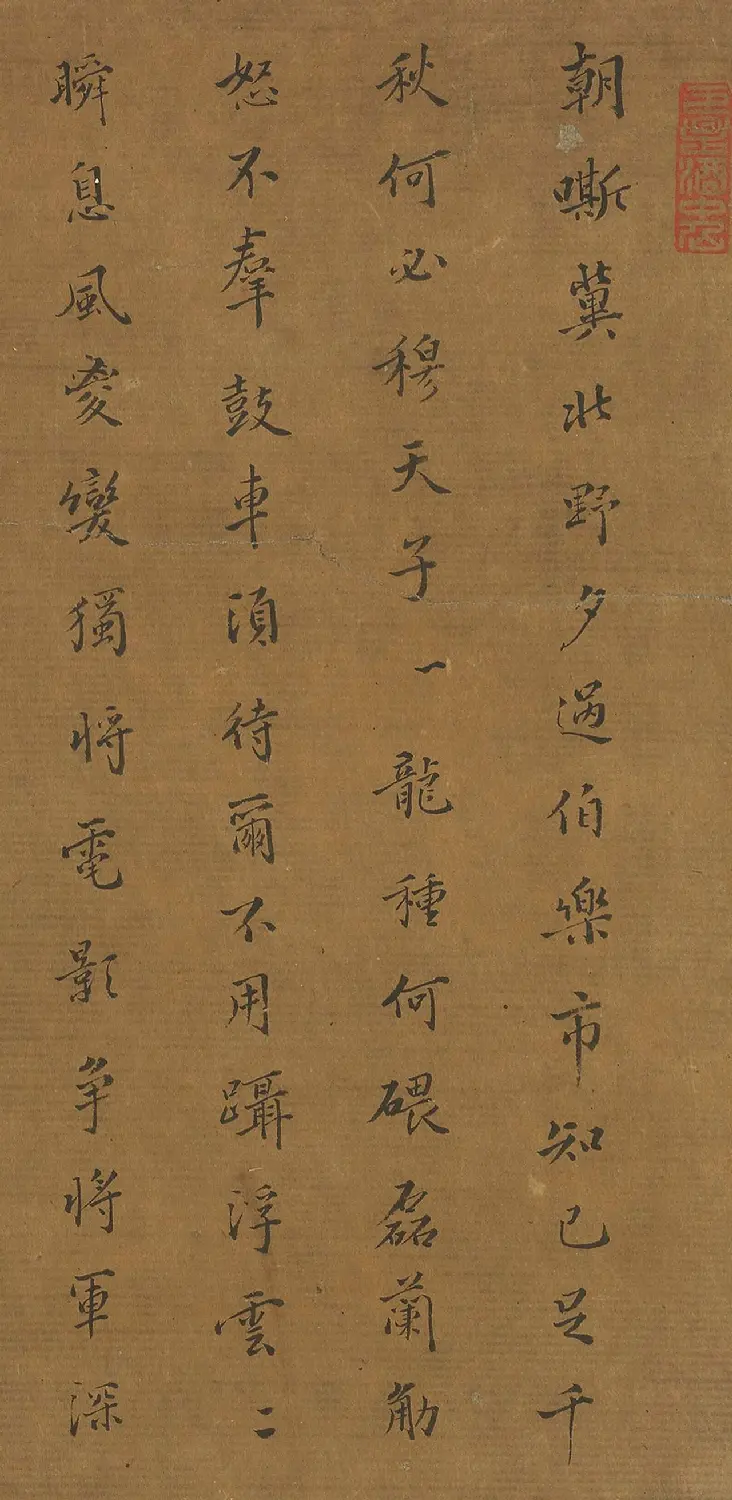 朝嘶冀北野夕過伯樂市知己足千
秋何必穆天子一龍種何碨磊蘭觔
怒不羣鼓車須待爾不用躡浮雲二
瞬息風雲變獨將電影爭將軍深